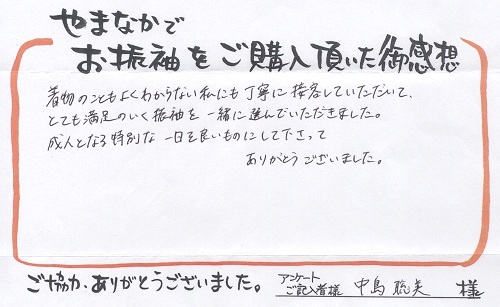 やまなかで
お振袖をご購入頂いた御感想
着物のこともよくわからない私にも丁寧に接客していただいて、
とても満足のいく振袖を一緒に選んでいただきました。
成人となる特別な一日を良いものにして下さって
ありがとうございました。
ご協力、ありがとうございました。
アンケート
ご記入者様 中島 聡美 様